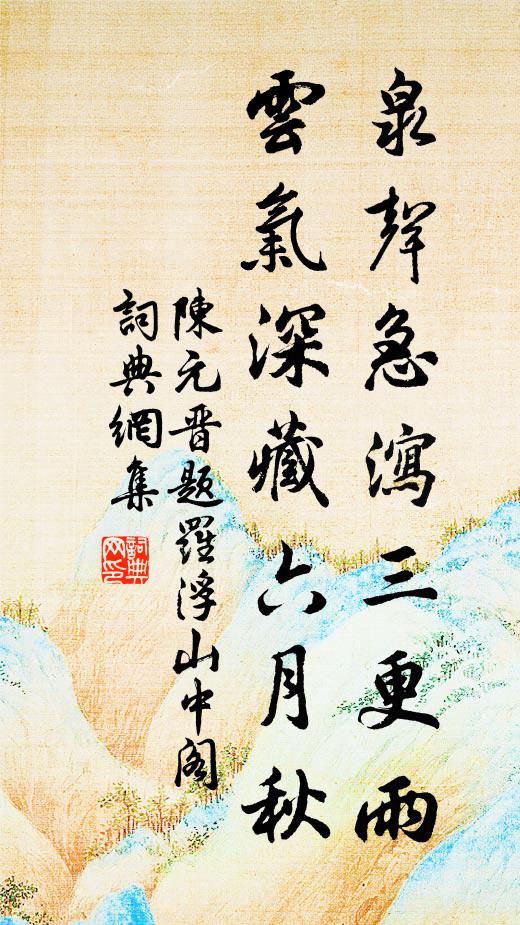 泉聲急瀉三更雨
雲氣深藏六月秋
陳元晋題羅浮山中阁
詞典網集
詞典
网印